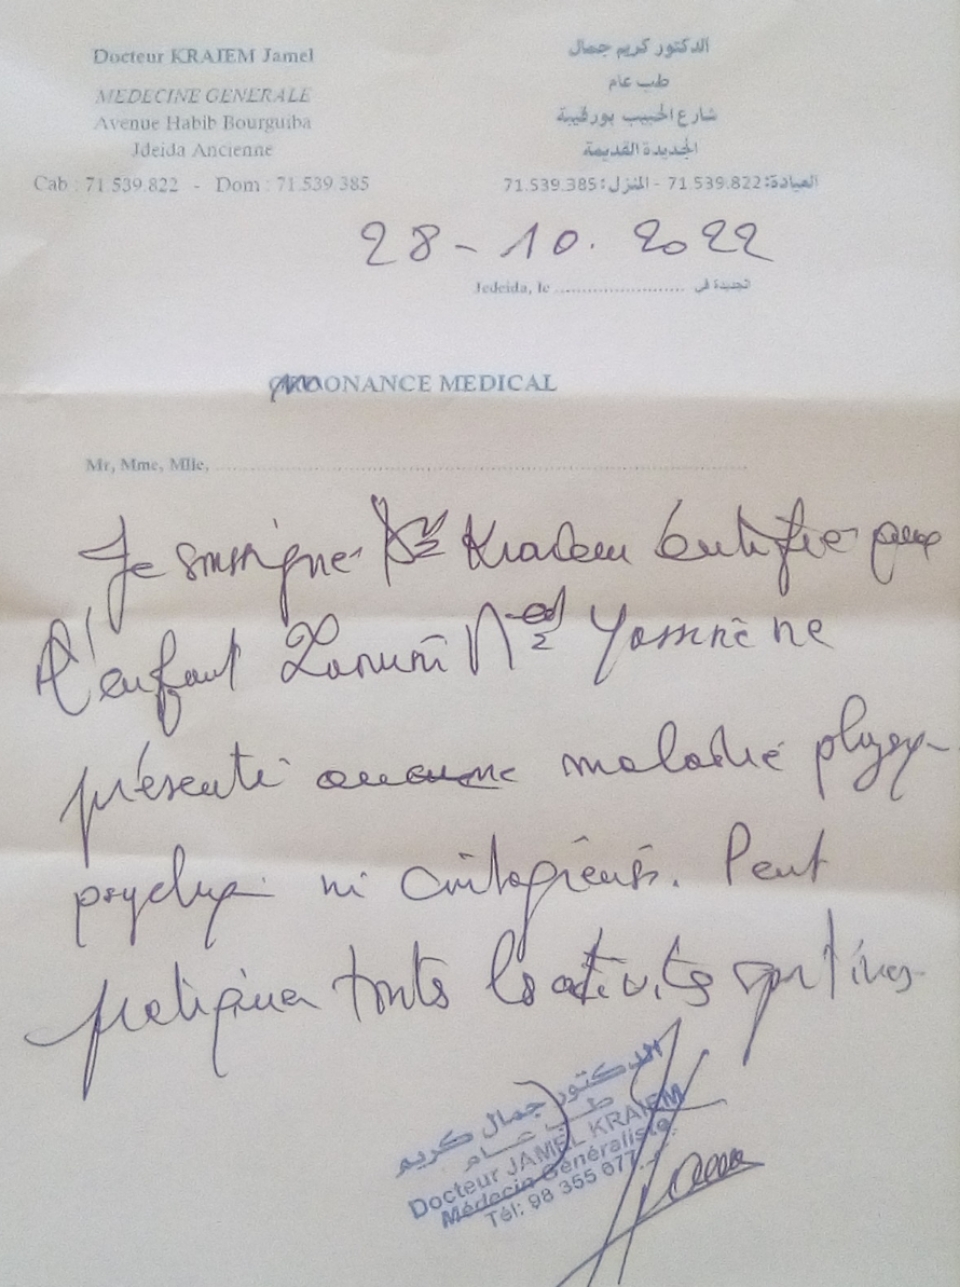 Docteur KRAIEM Jamel
MEDECINE GENERALE
Avenue Habib Bourguiba
Jdeida Ancienne
Cab : 71.539.822 - Dom : 71.539.385
الدكتور كريم جمال
طب عام
شارع الحبيب بورقيبة
الجديدة القديمة
العيادة: 71.539.822 - المنزل: 71.539.385
28 - 10. 2022
Jedeida, le ........................ الجديدة في
ONANCE MEDICAL
Mr, Mme, Mlle, ........................
Je soussigné Dr Kraiem certifie que
l'enfant
présente aucune maladie physq
psychq ni contagieuse. Peut
pratiquer touts les activités sportives
الدكتور جمال كريم
طب عام
Docteur JAMEL KRAIEM
Médecin Généraliste
Tél: 98 355 077